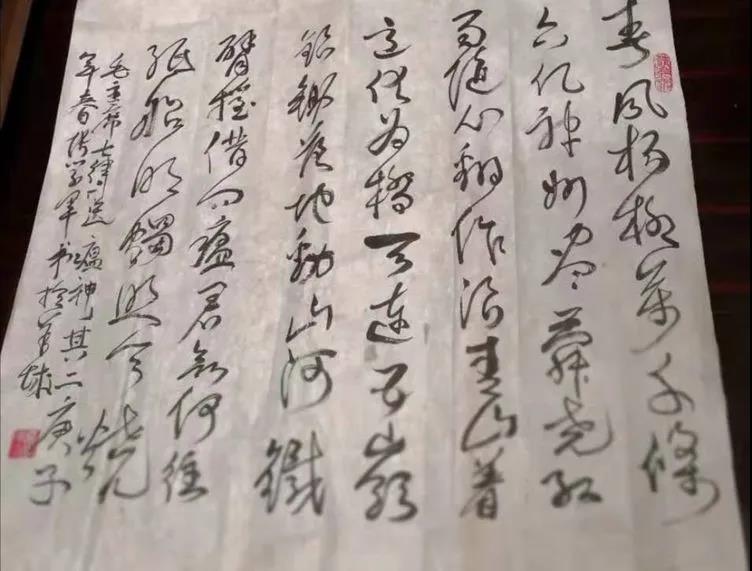 春风杨柳萬千條
六亿神州尽舜尧红
雨随心翻作浪青山着
意化为橋天连五岭
銀鋤落地動山河鐵
臂摇借问瘟君欲何往
纸船明燭照天烧
毛主席七律送瘟神其二庚子
年春 学军书於